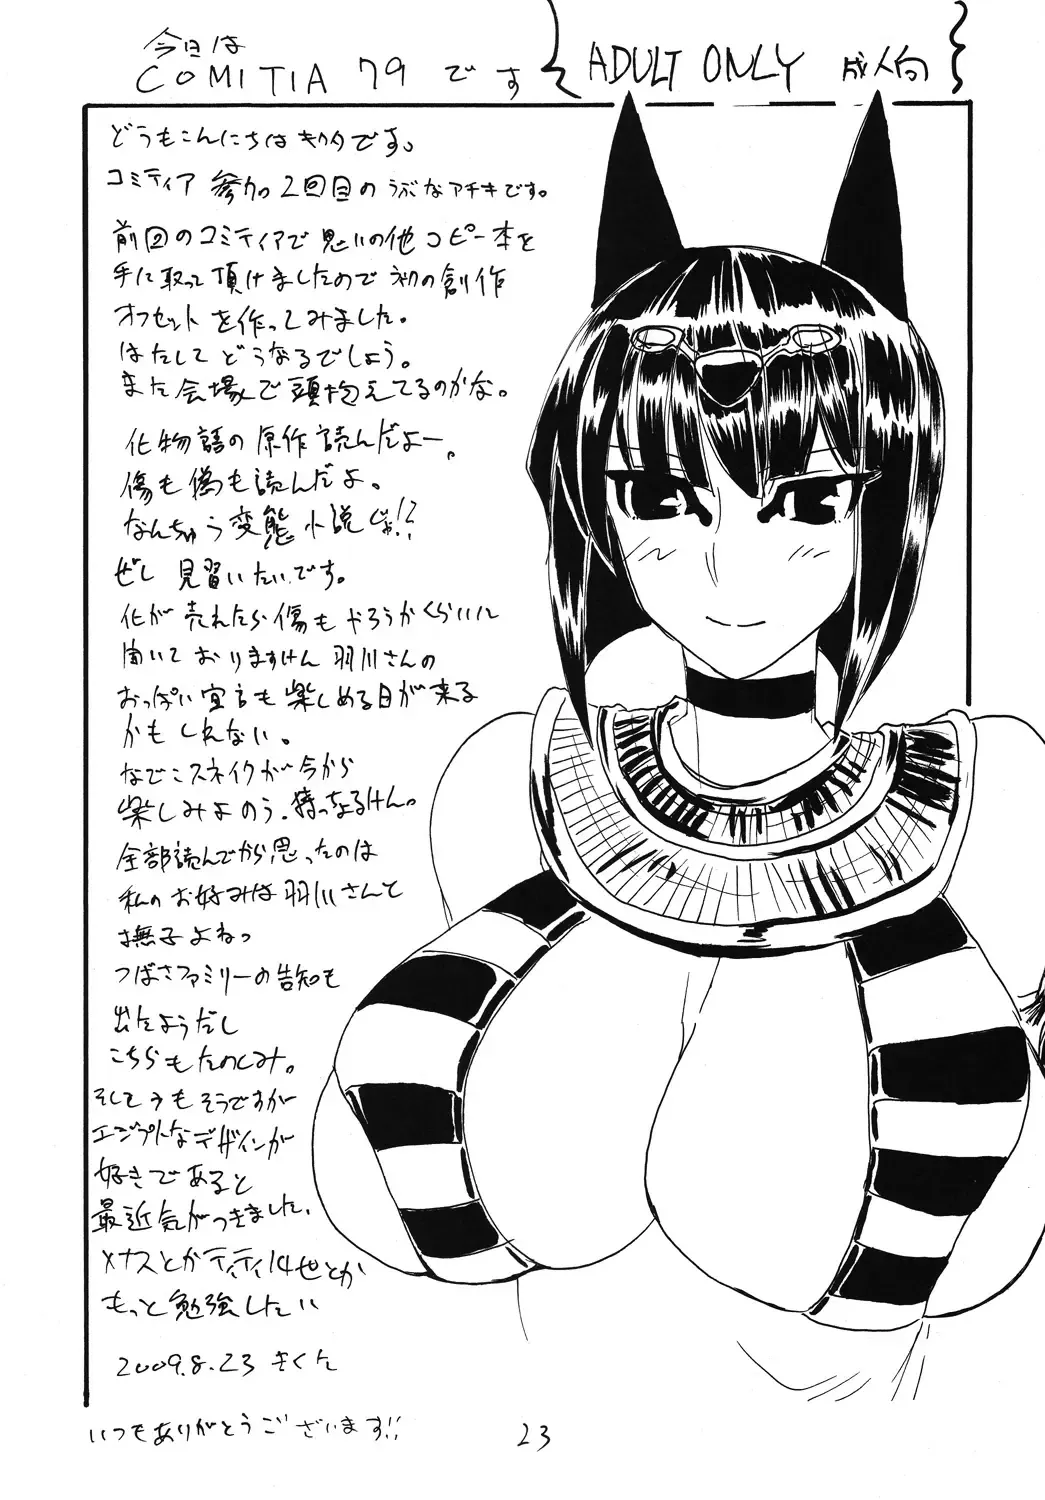 今日は
COMITIA 79 です
ADULT ONLY 成人向
どうもこんにちはキクタです。
コミティア 参加2回目のうぶなアチキです。
前回のコミティアで思いの他コピー本を
手に取って頂けましたので初の創作
オフセットを作ってみました。
はたしてどうなるでしょう。
また会場で頭抱えてるのかな。
化物語の原作読んだよー。
傷も偽も読んだよ。
なんちゅう変態小説じゃ!?
ぜし見習いたいです。
化が売れたら傷もやろうかくらいに
聞いておりますけん羽川さんの
おっぱい宣言も楽しめる日が来る
かもしれない。
なでこスネイクが今から
楽しみよのう。待っちょるけん。
全部読んでから思ったのは
私のお好みは羽川さんと
撫子よねっ
つばさファミリーの告知も
出たようだし
こちらもたのしみ。
そしてうもそうですが
エジプトなデザインが
好きであると
最近気がつきました。
メナスとかティティ14世とか
もっと勉強したい
2009.8.23 きくた
いつもありがとうございます!!
23